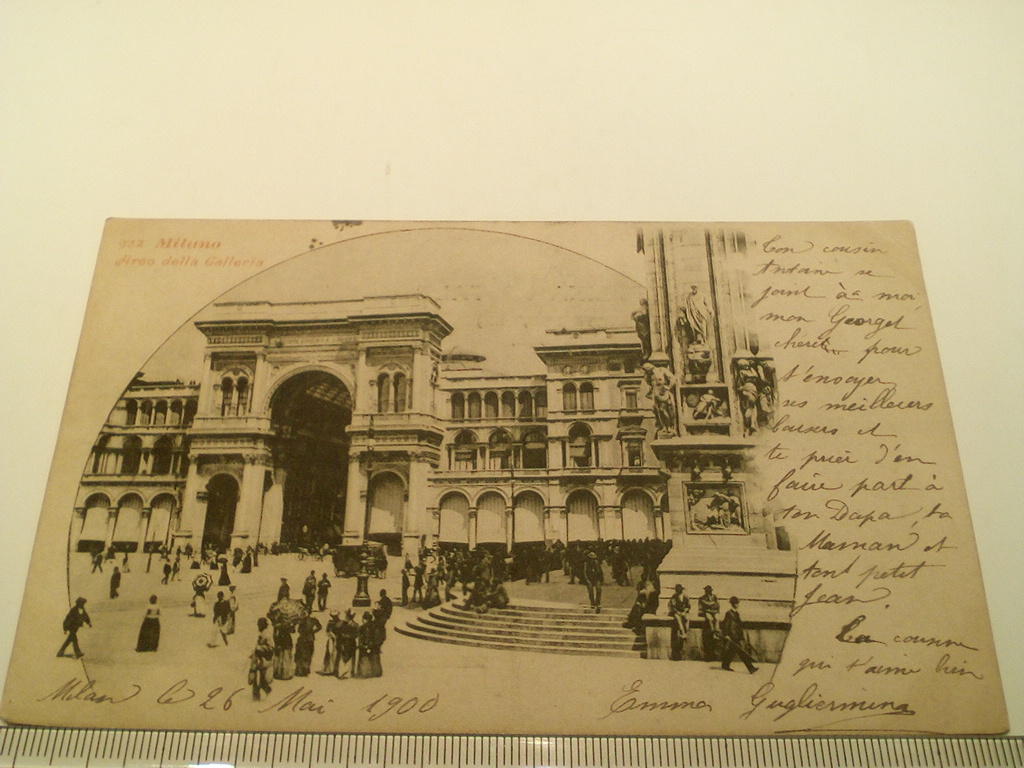 932 Milano
Arco della Galleria
Ton cousin
Antoine se
joint à moi
mon Georget
cheri pour
t'envoyer
ses meilleurs
baisers et
te prier d'en
faire part à
ton Papa, ta
Maman et
ton petit
Jean.
La cousine
qui t'aime bien
Emma Gugliermina
Milan le 26 Mai 1900